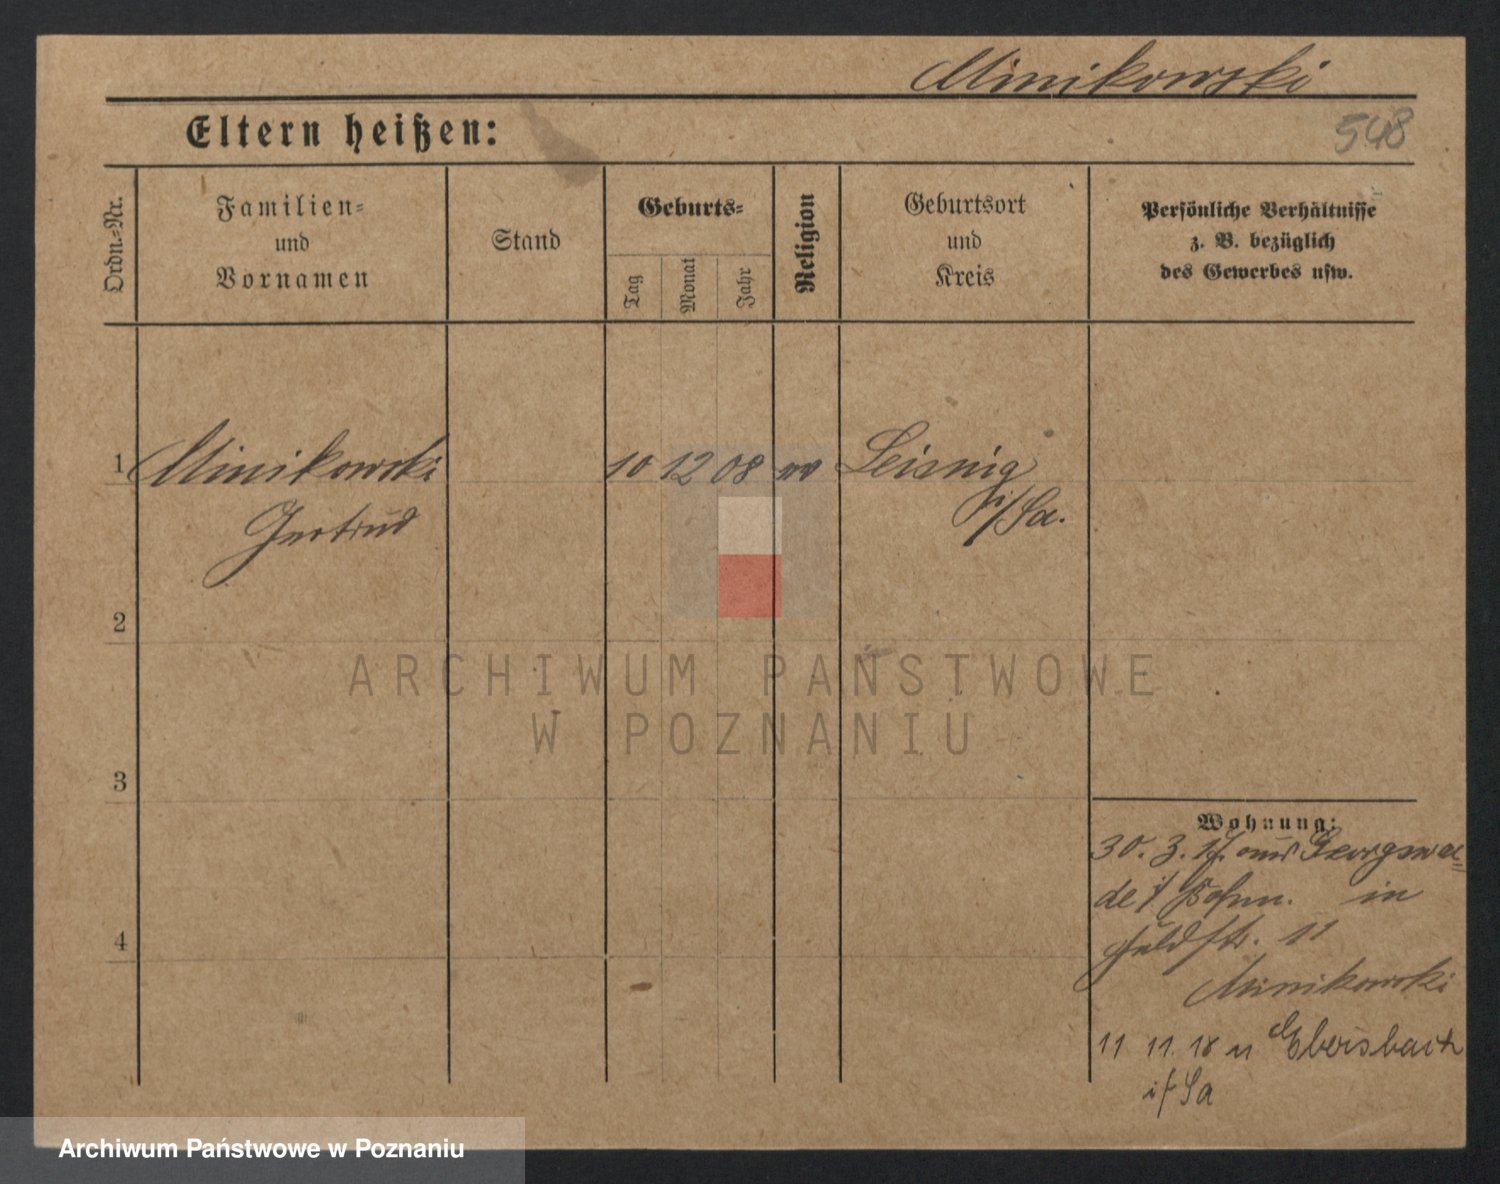 Minikowski
Eltern heißen:
548
Ordn.-Nr.
Familien-
und
Vornamen
Stand
Geburts-
Tag
Monat
Jahr
Religion
Geburtsort
und
Kreis
Persönliche Verhältnisse
z. B. bezüglich
des Gewerbes usw.
1 Minikowski 10 12 08 Leisnig
Gertrud i/Sa.
2
ARCHIWUM PAŃSTWOWE
W POZNANIU
3
Wohnung:
30. 3. 17. aus Georgswal=
de i/ Böhm. in
Feldstr. 11
Minikowski
4
11 11. 18 n Ebersbach
i/ Sa
Archiwum Państwowe w Poznaniu